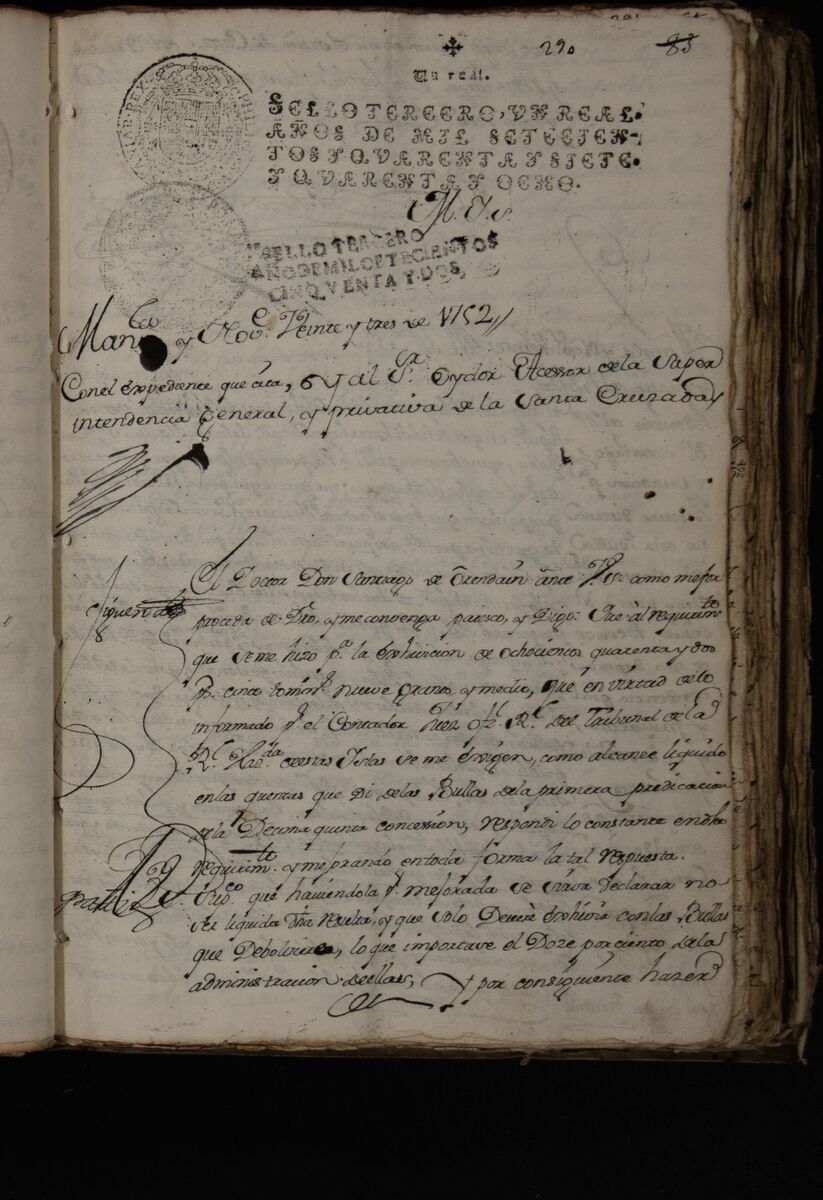 29. 83
Un real.
SELLO TERCERO, VN REAL.
AÑOS DE MIL SETECIEN-
TOS Y QVARENTA Y SIETE.
Y QVARENTA Y OCHO.
M. Y. S.
SELLO TERCERO
AÑO DE MIL SETECIENTOS
CINQVENTA Y DOS,
Man.la y Nov.e Veinte y tres de 1752
Con el Expediente que cita, y al S.r Oydor Acessor de la Super
intendencia General, y privativa de la Santa Cruzada
El Doctor Don Santiago de Orendain ante V.S. como mejor
proceda de dro, y me convenga paresco, y Digo: Que al requirim.to
que se me hizo p.a la exhivicion de ochocientos quarenta y dos
p.s cinco tomin.s nueve granos y medio, que en virtud de lo
informado p.r el Contador Juez Of.l R.l del Tribunal de la
R.l Haz.da de estas Yslas se me exigen, como alcanze liquido
en las quentas que di de las Bullas de la primera predicacion
de la Decima quinta concession, respondi lo constante en dho
requirim.to y mejorando en toda forma la tal respuesta.
Sup.co que haviendola p.r mejorada se sirva declarar no
ser liquida dha resulta, y que solo Devere exhivir con las Bullas
que Debolviere, lo que importare el Doze por ciento de la
administracion de ellas, y por consiguiente hazer